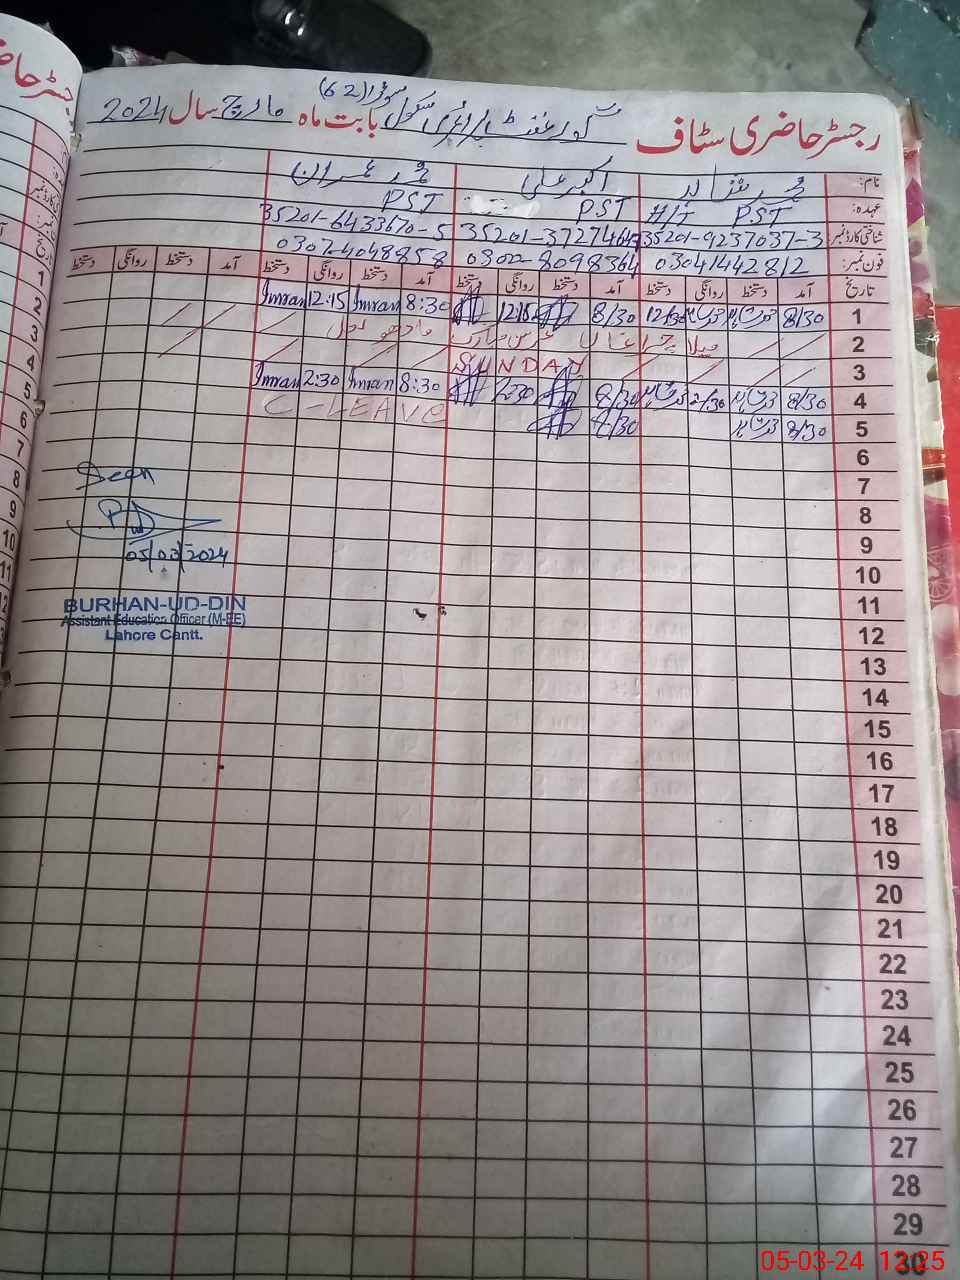 رجسٹر حاضری سٹاف گورنمنٹ پرائمری سکول (62) بابت ماہ مارچ سال 2024
نام: محمد شاہد اکبر علی محمد عمران
عہدہ: H/T PST PST PST
شناختی کارڈ نمبر 35201-9237037-3 35201-6433670-5
فون نمبر: 03041442812 0302-8098364 0302-4048858
تاریخ آمد دستخط روانگی دستخط آمد دستخط روانگی دستخط آمد دستخط روانگی دستخط آمد دستخط روانگی دستخط
1 8/30 12/30 8/30 12:15 8:30 Imran 12:15 Imran
2 میلا چراغاں عرس مبارک مادھو لال
3 SUNDAY
4 8/30 2/30 8/30 2:30 8:30 Imran 2:30 Imran
5 8/30 8/30 C-LEAVE
6
7
Seen
8
9
05/03/2024
10
11
BURHAN-UD-DIN
Assistant Education Officer (M-EE)
Lahore Cantt.
12
13
14
15
16
17
18
19
20
21
22
23
24
25
26
27
28
29
30
05-03-24 12:25